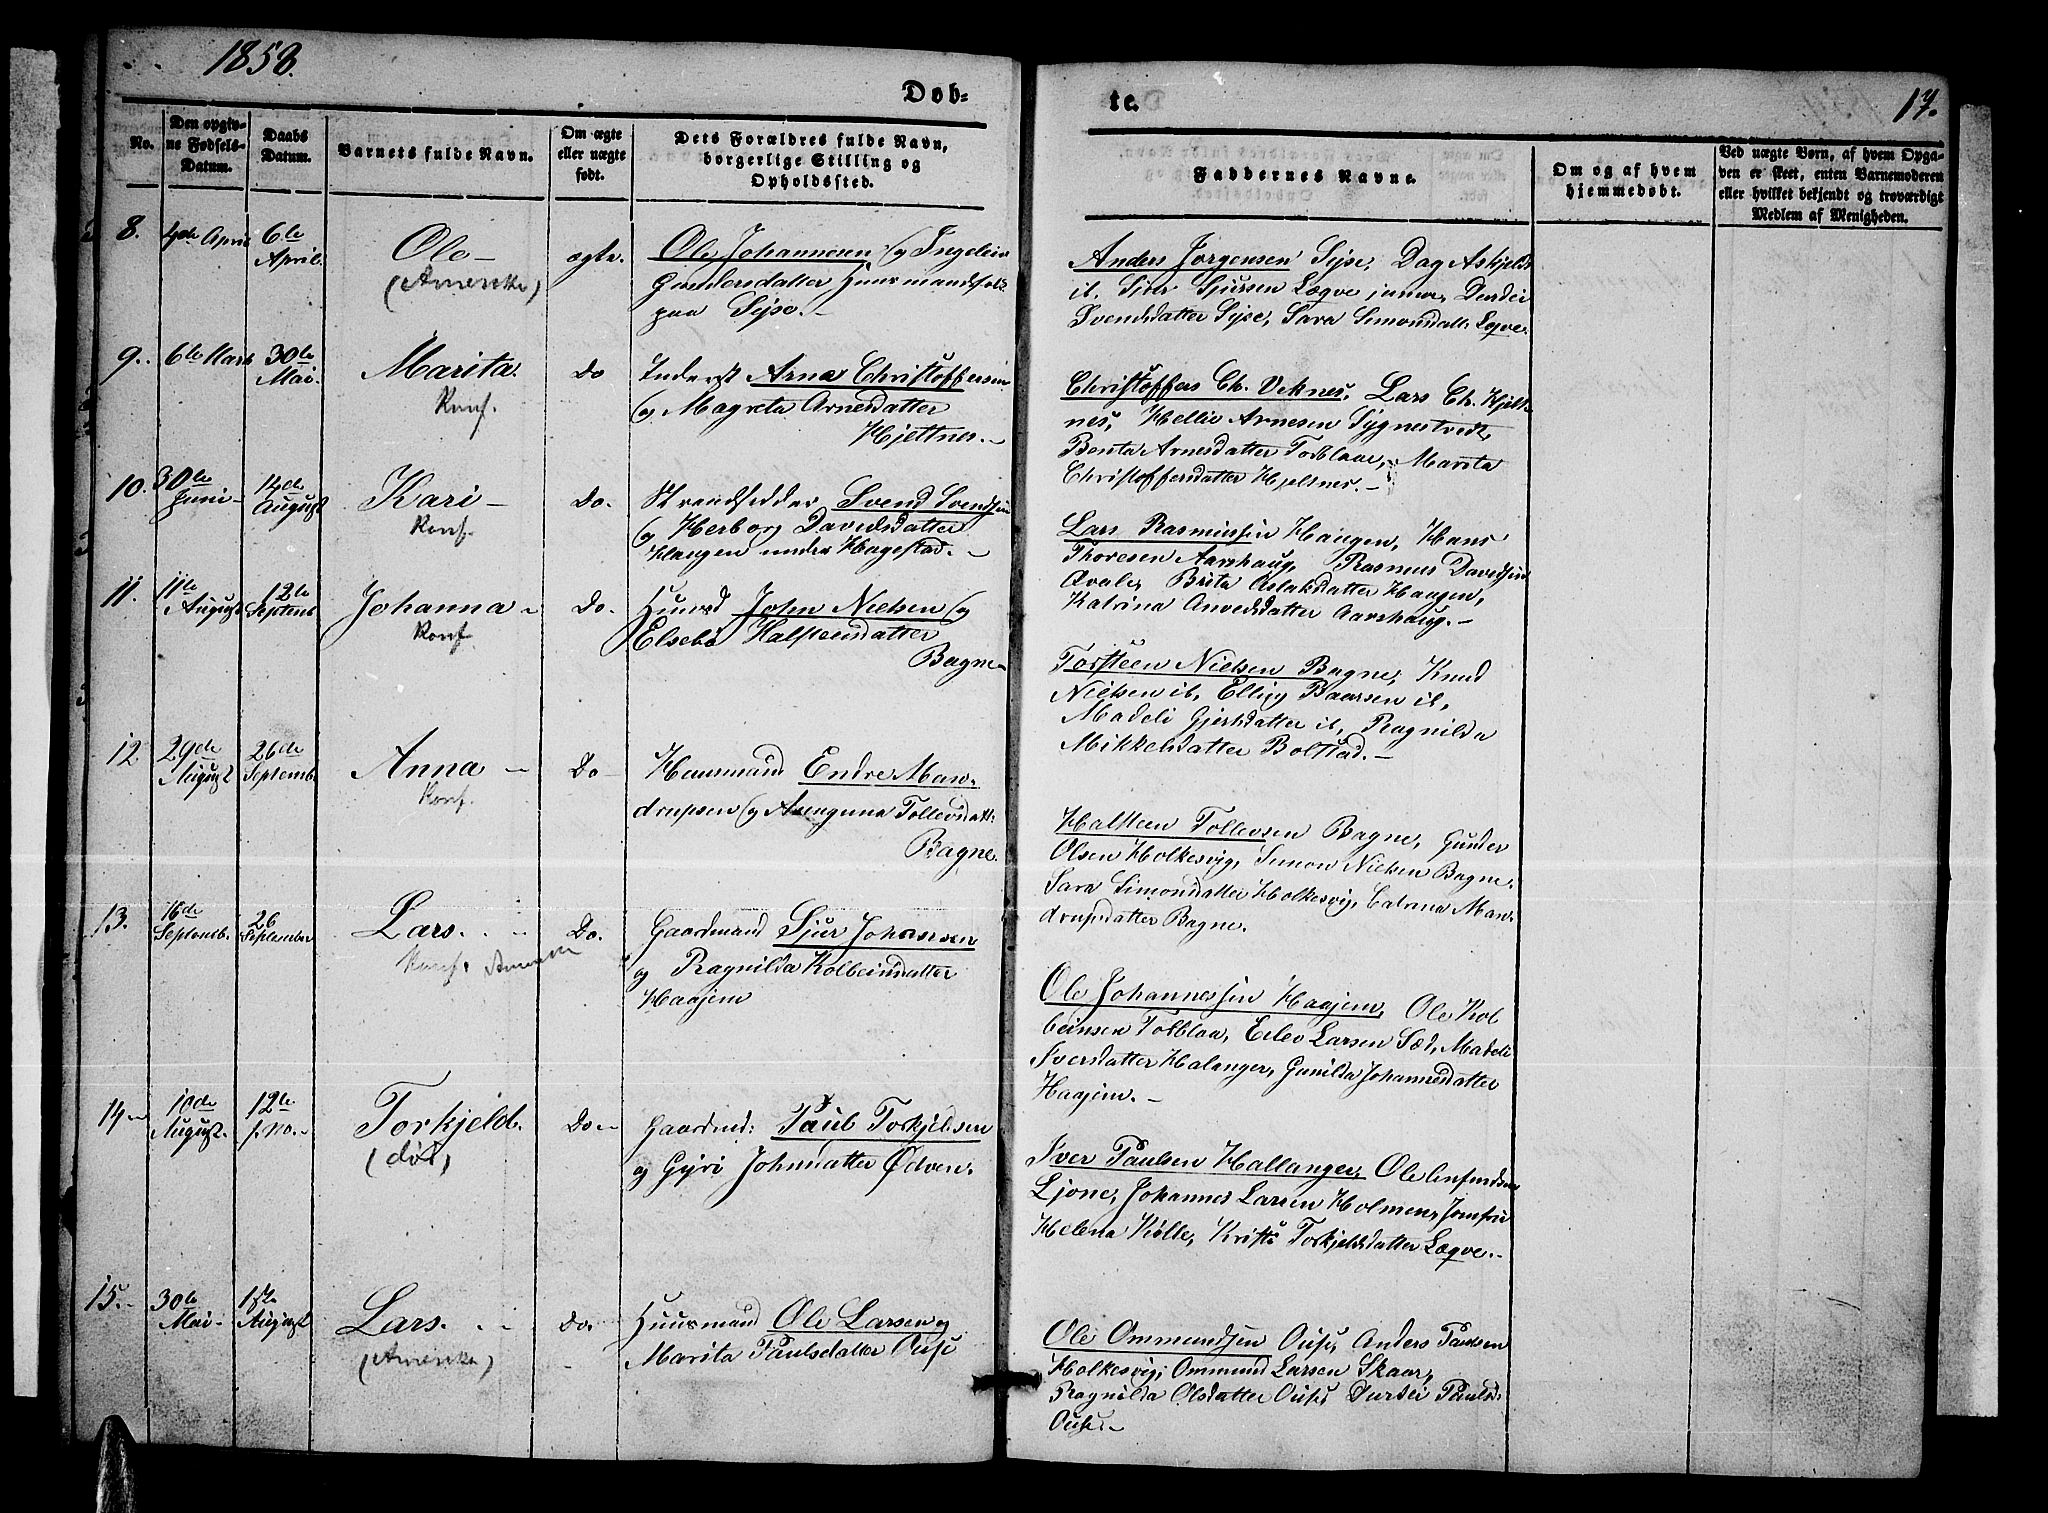 1858.
Døb-
te.
17.
No.
Den opgiv-
ne Fødsels-
Datum.
Daabs
Datum.
Barnets fulde Navn.
Om ægte
eller uægte
født.
Dets Forældres fulde Navn,
borgerlige Stilling og
Opholdssted.
Faddernes Navne.
Om og af hvem
hjemmedøbt.
Ved uægte Børn, af hvem Opga-
ven er skeet, enten Barnemoderen
eller hvilket bekjendt og troværdigt
Medlem af Menigheden.
8.
4de April
6te
April.
Ole
(Amerika)
ægte.
Ole Johannesen og Ingeleiv
Gundersdatter Huusmandsfolk
paa Sijse.
Anders Jørgensen Sijse, Dag Askjelds
ib. Sjur Sjursen Lægve junior, Durdei
Svendsdatter Sijse, Sara Simonsdatt. Legve.
9.
6te Marts
30te
Mai.
Marita.
Konf.
Do
Inderst Arne Christoffersen
og Magreta Arnesdatter
Hjeltnes.
Christoffers Ch. Veknes, Lars Ch. Hjelt-
nes, Hellie Arnesen Sygnestvedt,
Benta Arnesdatter Torblaae, Marita
Christoffersdatter Hjeltnes.
10.
30te
Juni
14de
August
Kari
Konf.
Do.
Strandsidder Svend Svendsen
og Herborg Davidsdatter
Haugen under Hagestad.
Lars Rasmussen Haugen, Hans
Thoresen Aarshaug, Rasmus Davidsen
Qvale, Brita Aslaksdatter Haugen,
Katrina Anvedsdatter Aarshaug.
11.
11te
August
12te
Septemb
Johanna
Konf.
Do.
Huusd John Nielsen og
Elsebe Halsteensdatter
Bagne
Torsteen Nielsen Bagne, Knud
Nielsen ib, Elling Baarsen ib,
Madeli Gjertsdatter ib, Ragnilda
Mikkelsdatter Bolstad.
12.
29de
August
26de
Septemb.
Anna
Konf.
Do
Huusmand Endre Man-
drupsen og Anenguna Tollevsdatt:
Bagne.
Halsteen Tollevsen Bagne, Gunder
Olsen Holkesvig, Simon Nielsen Bagne.
Sara Simonsdatter Holkesvig, Catrina Man-
drupsdatter Bagne.
13.
16de
Septemb.
26
September
Lars.
Konf. Amerika
Do.
Gaardmand Sjur Johansen
og Ragnilda Kolbeinsdatter
Haajem
Ole Johannessen Haajem, Ole Kol
beinsen Torblaa, Eilev Larsen Sæd, Madeli
Iversdatter Halanger, Gunilda Johannesdatter
Haajem.
14
10de
August.
12te
f. no.
Torkjeld.
(død)
Do
Gaardmd: Paul Torkjelsen
og Gyri Johnsdatter Ødven.
Iver Paulsen Hallanger, Ole Amundsen
Ljone, Johannes Larsen Holmen, Jomfru
Helena Kølle, Kristi Torkjeldsdatter Lægve.
15.
30te
Mai
1ste
August
Lars.
(Amerika)
Do.
Huusmand Ole Larsen og
Marita Paulsdatter Ouse
Ole Ommundsen Ouse, Anders Paulsen
Holkesvig, Ommund Larsen Skaar,
Ragnilda Olsdatter Ouse, Durdei Paulsd.
Ouse.